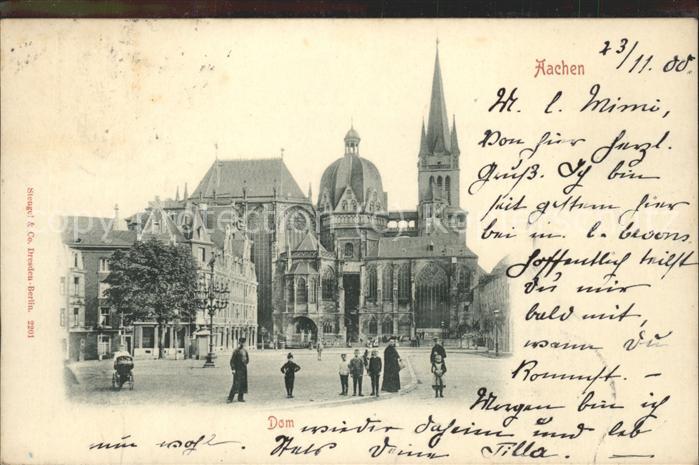 Aachen
23/11.00.
M. l. Mimi,
Von hier herzl.
Gruß. Ich bin
seit gestern hier
bei m. l.
Hoffentlich teilst
Du mir
bald mit,
wann Du
kommst. –
Morgen bin ich
Dom wieder daheim und leb
nur wohl. Stets Deine Tilla.
Stengel & Co. Dresden-Berlin. 2201